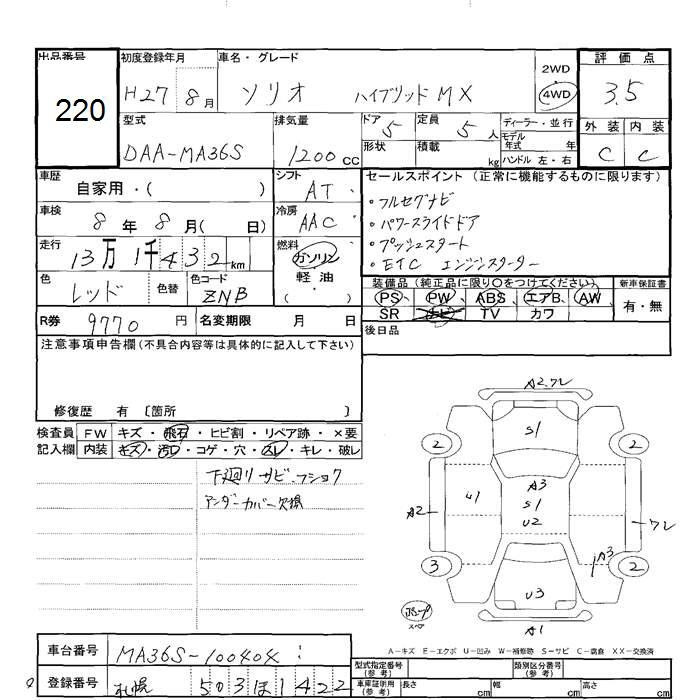 出品番号 初度登録年月 車名・グレード 2WD 評価点
220 H27 8月 ソリオ ハイブリッド MX 4WD 3.5
型式 排気量 ドア 5 定員 5人 ディーラー・並行 外装 内装
DAA-MA36S 1200cc 形状 積載 kg モデル年式 年 C C
ハンドル 左・右
車歴 自家用・( ) シフト AT セールスポイント (正常に機能するものに限ります)
車検 8年 8月( 日) 冷房 AAC ・フルセグナビ
・パワースライドドア
走行 13万1千432km 燃料 ガソリン 軽油 ・プッシュスタート
・ETC エンジンスターター
色 レッド 色替 色コード ZNB 装備品 (純正品に限り○をつけてください) 新車保証書
PS PW ABS エアB. AW 有・無
R券 9770円 名変期限 月 日 SR ナビ TV カワ
注意事項申告欄(不具合内容等は具体的に記入して下さい) 後日品
修復歴 有 〔箇所 〕
検査員 FW キズ・飛石・ヒビ割・リペア跡・×要
記入欄 内装 キズ・汚レ・コゲ・穴・スレ・キレ・破レ
下廻リ サビ・フショク
アンダーカバー欠損
A2.ワレ
S1
2 2
A3
U1 S1
A2 U2 ワレ
A3
3 2
U3
スペア
A1
A-キズ E-エクボ U-凹み W-補修跡 S-サビ C-腐食 XX-交換済
車台番号 MA36S-100404
登録番号 札幌 503 ほ 1422
型式指定番号(参考) 類別区分番号(参考)
車庫証明用(参考) 長さ cm 幅 cm 高さ cm